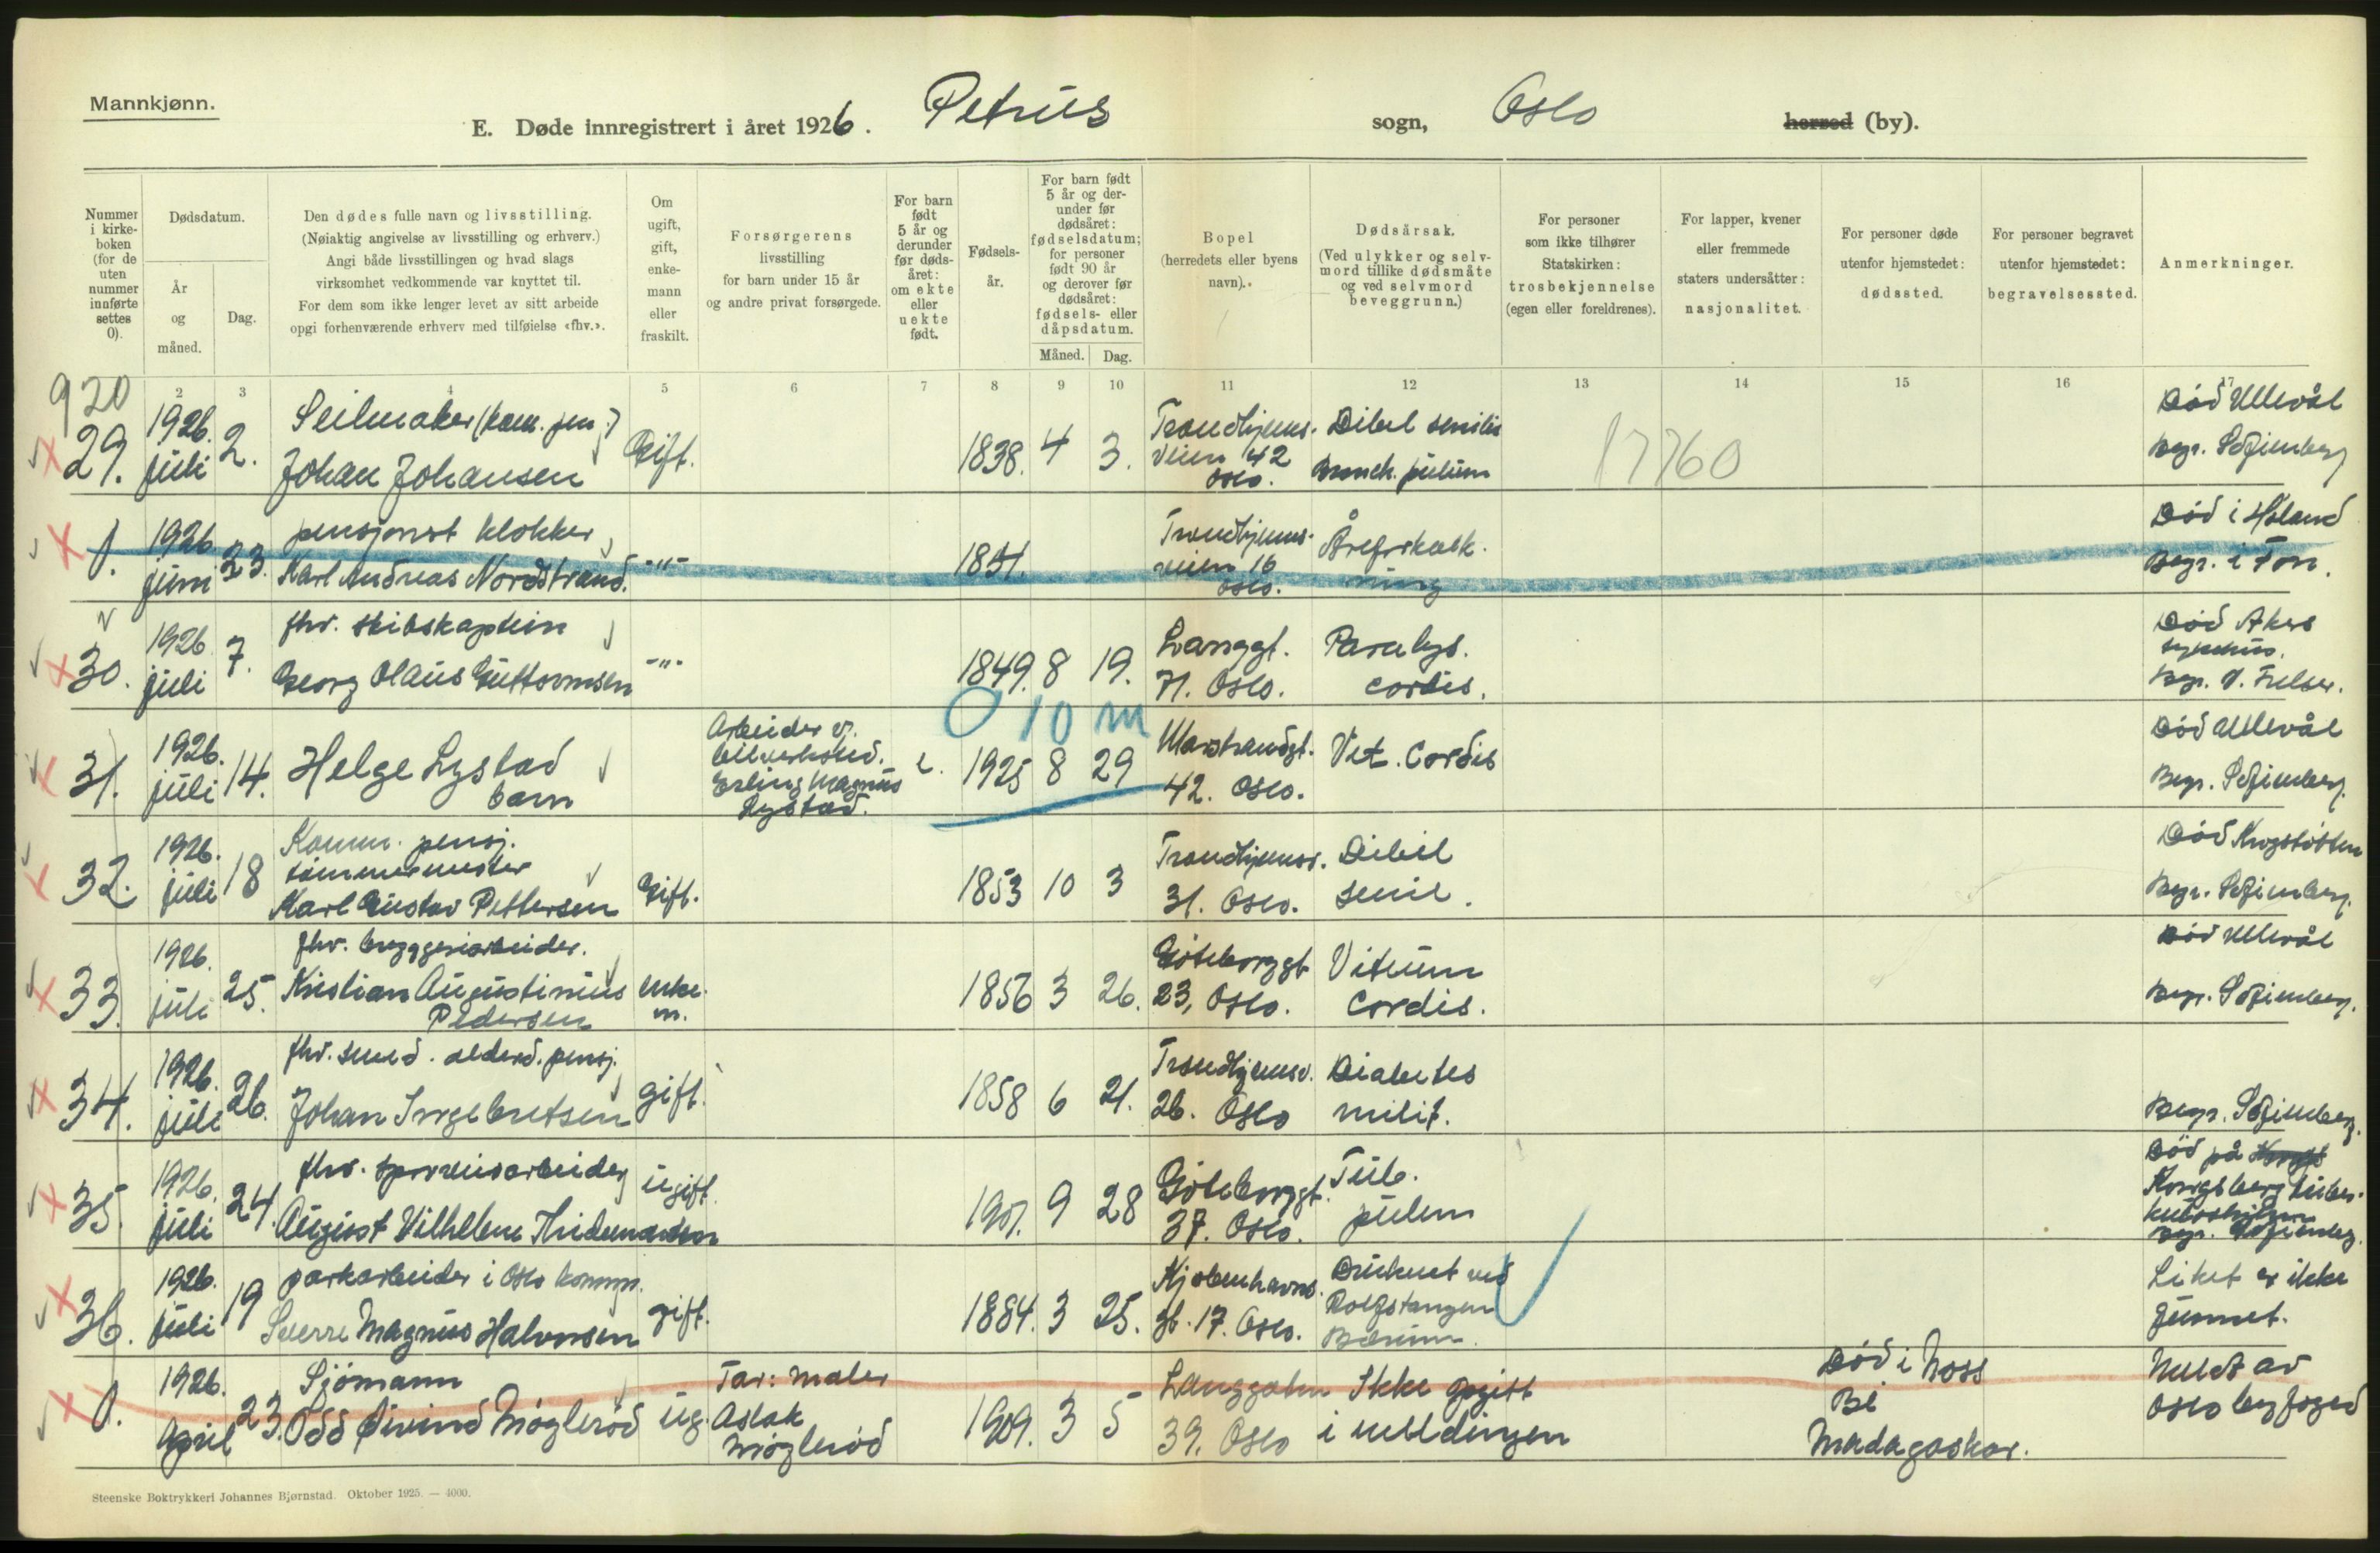 Mannkjønn.
E. Døde innregistrert i året 1926. Petrus sogn, Oslo herred (by).
Nummer i kirkeboken (for de uten nummer innførte settes 0).
Dødsdatum.
År og måned.
Dag.
Den dødes fulle navn og livsstilling.
(Nøiaktig angivelse av livsstilling og erhverv.)
Angi både livsstillingen og hvad slags
virksomhet vedkommende var knyttet til.
For dem som ikke lenger levet av sitt arbeide
opgi forhenværende erhverv med tilføielse «fhv.».
Om ugift, gift, enkemann eller fraskilt.
Forsørgerens
livsstilling
for barn under 15 år
og andre privat forsørgede.
For barn født 5 år og derunder før dødsåret: om ekte eller uekte født.
Fødselsår.
For barn født 5 år og derunder før dødsåret: fødselsdatum; for personer født 90 år og derover før dødsåret: fødsels- eller dåpsdatum.
Måned.
Dag.
Bopel
(herredets eller byens
navn).
Dødsårsak.
(Ved ulykker og selvmord tillike dødsmåte og ved selvmord beveggrunn.)
For personer
som ikke tilhører
Statskirken:
trosbekjennelse
(egen eller foreldrenes).
For lapper, kvener
eller fremmede
staters undersåtter:
nasjonalitet.
For personer døde
utenfor hjemstedet:
dødssted.
For personer begravet
utenfor hjemstedet:
begravelsessted.
Anmerkninger.
2 3 4 5 6 7 8 9 10 11 12 13 14 15 16 17
920
29. 1926. juli 2. Seilmaker (kom. pen.) Johan Johansen Gift. 1838. 4 3. Trondhjems-veien 42 Oslo. Debil senilis Bronch. pulum 17760 Død Ullevål Begr. Sofienberg
0. 1926. juni 23. pensjonert klokker Karl Andreas Nordstrand. -"- 1851. Trondhjems-veien 16 Oslo. Åreforkalkning Død i Høland Begr. i Fon.
30. 1926 juli 7. fhv. skibskaptein Georg Olaus Guttormsen -"- 1849. 8 19. Langgt. 71. Oslo. Paralys. cordis. Død Akers sykehus. Begr. V. Frelser.
0 10 m
31. 1926. juli 14. Helge Lystad barn Arbeider v. Erling Magnus Lystad. e. 1925 8 29 Marstrandgt. 42. Oslo. Vit. Cordis Død Ullevål Begr. Sofienberg.
32. 1926. juli 18 Komm. pensj. tømmermester Karl Gustav Pettersen Gift. 1853 10 3 Trondhjemsv. 31. Oslo. Debil senil. Død Krogstøtten Begr. Sofienberg.
33. 1926. juli 25. fhv. bryggeriarbeider. Kristian Augustinius Pedersen enke-m. 1856 3 26. Göteborggt 23, Oslo. Vitium Cordis. Død Ullevål Begr. Sofienberg.
34. 1926. juli 26. fhv. smed. alderd. pensj. Johan Ingebretsen gift. 1858 6 21. Trondhjemsv. 26. Oslo Diabetes milit. Begr. Sofienberg.
35. 1926. juli 24. fhv. sporveisarbeider August Vilhelm Thidemandsen ugift. 1901. 9 28 Göteborggt. 37. Oslo. Tub. pulm Død på Kongsberg Begr. Sofienberg.
36. 1926. juli 19 parkarbeider i Oslo komm. Sverre Magnus Halvorsen gift. 1884. 3 25. Kjøbenhavns gt. 17. Oslo. Druknet ved Rolfstangen Bærum. Liket er ikke funnet.
0. 1926. April 23. Sjömann Odd Øivind Møglerød ug. Far: maler Aslak Møglerød 1909. 3 5 Langgaten 39. Oslo Ikke opgitt i meldingen Død i Noss Bé Madagaskar. Meldt av Oslo byfoged
Steenske Boktrykkeri Johannes Bjørnstad. Oktober 1925. — 4000.